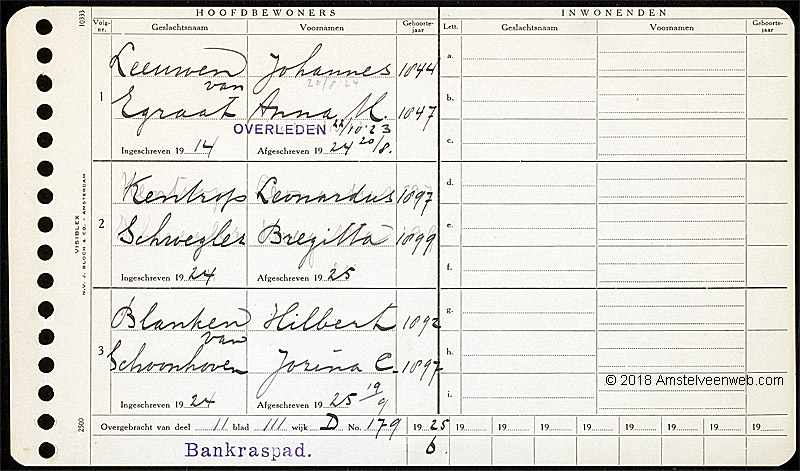 HOOFDBEWONERS INWONENDEN
Volg-nr. Geslachtsnaam Voornamen Geboorte-jaar Lett. Geslachtsnaam Voornamen Geboorte-jaar
10333
1
Leeuwen van Johannes 1844
20/8 24
Egraat Anna M. 1847
OVERLEDEN 22/10'23
Ingeschreven 19 14 Afgeschreven 19 24 20/8.
2
Kentrop Leonardus 1897
Schwegler Bregitta 1899
Ingeschreven 19 24 Afgeschreven 19 25
3
Blanken Hilbert 1892
van Schoonhoven Jorina C. 1897
Ingeschreven 19 24 Afgeschreven 19 25 19/9
a.
b.
c.
d.
e.
f.
g.
h.
i.
VISIBLEX
N.V. J. BLOCH & CO. - AMSTERDAM
2500
© 2018 Amstelveenweb.com
Overgebracht van deel 11 blad 111 wijk D No. 179 19 25 19 19 19 19 19 19 19 19
Bankraspad. 6.